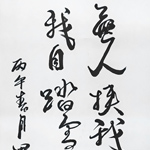 無人扶我
我自踏雪
丙午春月